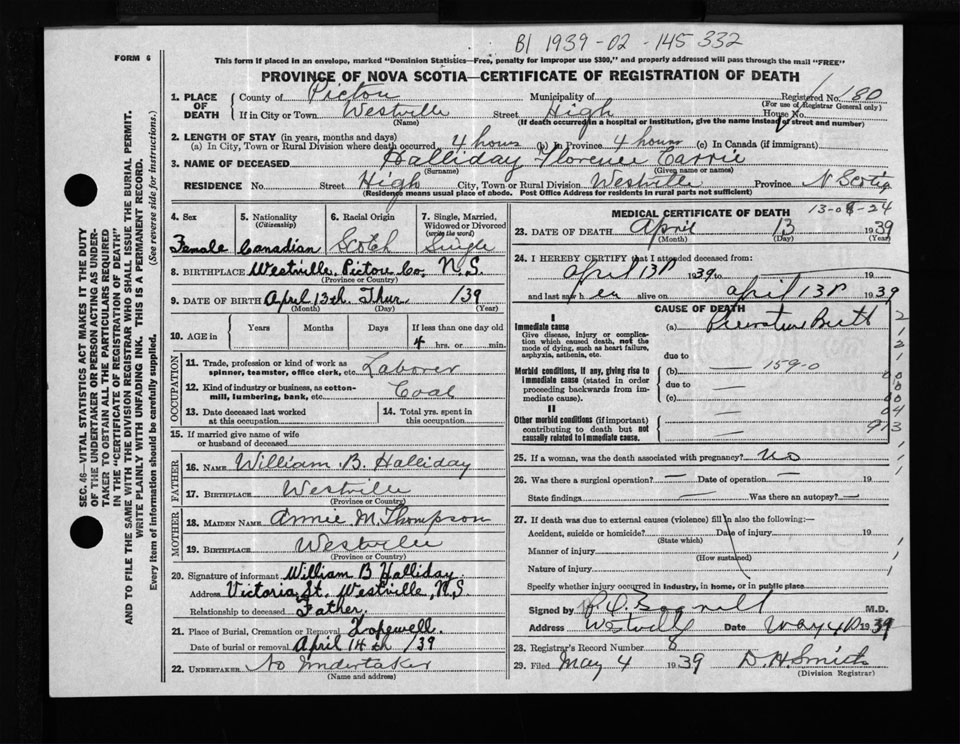 B1 1939-02-145332
FORM 6
This form if placed in an envelope, marked "Dominion Statistics—Free, penalty for improper use $300," and properly addressed will pass through the mail "FREE"
PROVINCE OF NOVA SCOTIA—CERTIFICATE OF REGISTRATION OF DEATH
SEC. 46—VITAL STATISTICS ACT MAKES IT THE DUTY
OF THE UNDERTAKER OR PERSON ACTING AS UNDER-
TAKER TO OBTAIN ALL THE PARTICULARS REQUIRED
IN THE "CERTIFICATE OF REGISTRATION OF DEATH"
AND TO FILE THE SAME WITH THE DIVISION REGISTRAR WHO SHALL ISSUE THE BURIAL PERMIT.
WRITE PLAINLY WITH UNFADING INK. THIS IS A PERMANENT RECORD.
Every item of information should be carefully supplied. (See reverse side for instructions.)
1. PLACE OF DEATH County of Pictou Municipality of Registered No. 180
(For use of Registrar General only)
If in City or Town Westville Street High House No.
(Name) (If death occurred in a hospital or institution, give the name instead of street and number)
2. LENGTH OF STAY (in years, months and days)
(a) In City, Town or Rural Division where death occurred 4 hours (b) In Province 4 hours (c) In Canada (if immigrant)
3. NAME OF DECEASED Halliday Florence Carrie
(Surname) (Given name or names)
RESIDENCE No. Street High City, Town or Rural Division Westville Province N Scotia
(Residence means usual place of abode. Post Office Address for residents in rural parts not sufficient)
4. Sex 5. Nationality 6. Racial Origin 7. Single, Married,
(Citizenship) Widowed or Divorced
(write the word)
Female Canadian Scotch Single
8. BIRTHPLACE Westville, Pictou Co. N.S.
(Province or Country)
9. DATE OF BIRTH April 13th Thur. /39
(Month) (Day) (Year)
10. AGE in Years Months Days If less than one day old
4 hrs. or min.
OCCUPATION
11. Trade, profession or kind of work as
spinner, teamster, office clerk, etc. Laborer
12. Kind of industry or business, as cotton-
mill, lumbering, bank, etc. Coal
13. Date deceased last worked 14. Total yrs. spent in
at this occupation this occupation
15. If married give name of wife
or husband of deceased
FATHER
16. NAME William B. Halliday
17. BIRTHPLACE Westville
(Province or Country)
MOTHER
18. MAIDEN NAME Annie M. Thompson
19. BIRTHPLACE Westville
(Province or Country)
20. Signature of informant William B Halliday
Address Victoria St. Westville, N.S
Relationship to deceased Father.
21. Place of Burial, Cremation or Removal Hopewell.
Date of burial or removal April 14th /39
22. UNDERTAKER No Undertaker
(Name and address)
MEDICAL CERTIFICATE OF DEATH
23. DATE OF DEATH April 13 1939
(Month) (Day) (Year)
24. I HEREBY CERTIFY that I attended deceased from:
April 13 1939 to 19
and last saw her alive on April 13 1939
CAUSE OF DEATH
I
Immediate cause (a) Premature Birth
Give disease, injury or complica-
tion which caused death, not the
mode of dying, such as heart failure,
asphyxia, asthenia, etc.
due to
Morbid conditions, if any, giving rise to (b) — 159-0
immediate cause (stated in order due to —
proceeding backwards from im-
mediate cause). (c) —
II
Other morbid conditions (if important) —
contributing to death but not
causally related to immediate cause. —
25. If a woman, was the death associated with pregnancy? no
26. Was there a surgical operation? — Date of operation — 19
State findings — Was there an autopsy? —
27. If death was due to external causes (violence) fill in also the following:—
Accident, suicide or homicide? Date of injury 19
(State which)
Manner of injury
(How sustained)
Nature of injury
Specify whether injury occurred in industry, in home, or in public place
Signed by M.D.
Address Westville Date May 4 1939
28. Registrar's Record Number 8
29. Filed May 4 1939 D. H. Smith
(Division Registrar)